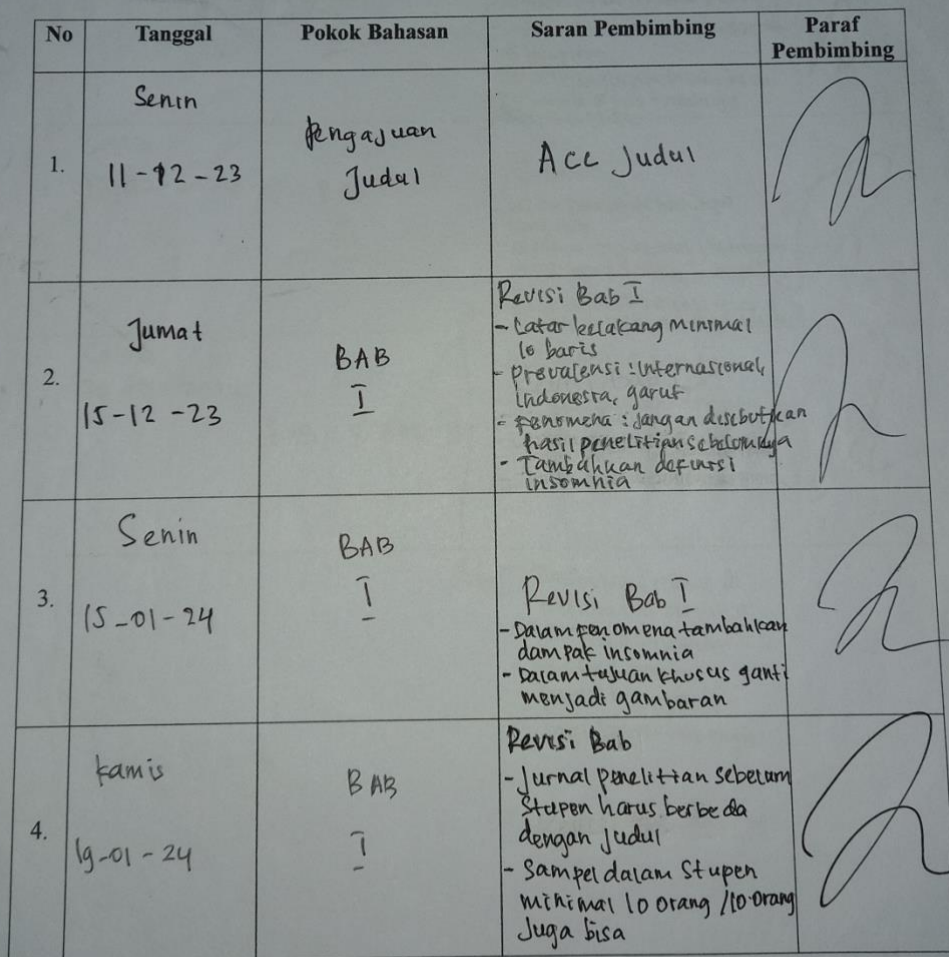 No Tanggal Pokok Bahasan Saran Pembimbing Paraf
Pembimbing
1.
Senin
11-12-23
Pengajuan
Judul
Acc Judul
2.
Jumat
15-12-23
BAB
I
Revisi Bab I
- Latar belakang minimal
10 baris
- Prevalensi : Internasional,
Indonesia, garut
- Fenomena : Jangan disebutkan
hasil penelitian sebelumnya
- Tambahkan definisi
insomnia
3.
Senin
15-01-24
BAB
I
Revisi Bab I
- Dalam fenomena tambahkan
dampak insomnia
- Dalam tujuan khusus ganti
menjadi gambaran
4.
Kamis
19-01-24
BAB
I
Revisi Bab
- Jurnal penelitian sebelum
Stupen harus berbeda
dengan judul
- Sampel dalam Stupen
minimal 10 orang / 10 orang
Juga bisa